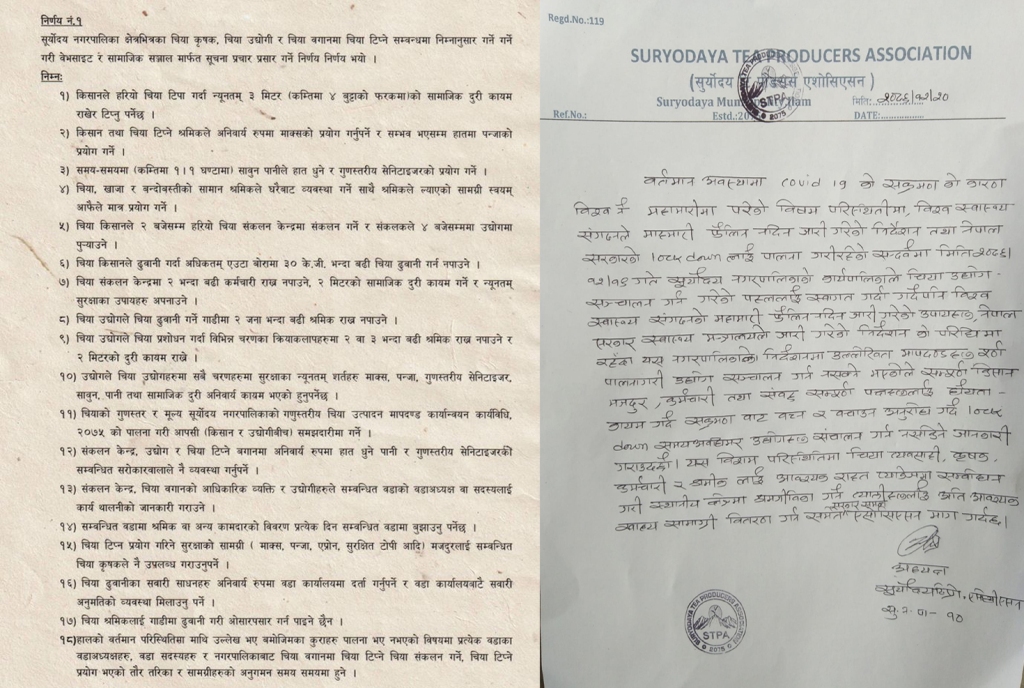 निर्णय नं.१
सूर्योदय नगरपालिका क्षेत्रभित्रका चिया कृषक, चिया उद्योगी र चिया बगानमा चिया टिप्ने सम्बन्धमा निम्नानुसार गर्ने गर्ने
गरी वेभसाइट र सामाजिक सञ्जाल मार्फत सूचना प्रचार प्रसार गर्ने निर्णय निर्णय भयो ।
निम्न:
१) किसानले हरियो चिया टिपा गर्दा न्यूनतम् ३ मिटर (कम्तिमा ४ बुट्टाको फरकमा)को सामाजिक दुरी कायम
राखेर टिप्नु पर्नेछ ।
२) किसान तथा चिया टिप्ने श्रमिकले अनिवार्य रुपमा माक्सको प्रयोग गर्नुपर्ने र सम्भव भएसम्म हातमा पन्जाको
प्रयोग गर्ने ।
३) समय-समयमा (कम्तिमा १।१ घण्टामा) साबुन पानीले हात धुने र गुणस्तरीय सेनिटाइजरको प्रयोग गर्ने ।
४) चिया, खाजा र बन्दोबस्तीको सामान श्रमिकले घरैबाट व्यवस्था गर्ने साथै श्रमिकले ल्याएको सामग्री स्वयम्
आफैले मात्र प्रयोग गर्ने ।
५) चिया किसानले २ बजेसम्म हरियो चिया संकलन केन्द्रमा संकलन गर्ने र संकलकले ४ बजेसम्ममा उद्योगमा
पुऱ्याउने ।
६) चिया किसानले ढुवानी गर्दा अधिकतम् एउटा बोरामा ३० के.जी. भन्दा बढी चिया ढुवानी गर्न नपाउने ।
७) चिया संकलन केन्द्रमा २ भन्दा बढी कर्मचारी राख्न नपाउने, २ मिटरको सामाजिक दुरी कायम गर्ने र न्यूनतम्
सुरक्षाका उपायहरु अपनाउने ।
८) चिया उद्योगले चिया ढुवानी गर्ने गाडीमा २ जना भन्दा बढी श्रमिक राख्न नपाउने ।
९) चिया उद्योगले चिया प्रशोधन गर्दा विभिन्न चरणका क्रियाकलापहरुमा २ वा ३ भन्दा बढी श्रमिक राख्न नपाउने र
२ मिटरको दुरी कायम राख्ने ।
१०) उद्योगले चिया उद्योगहरुमा सबै चरणहरुमा सुरक्षाका न्यूनतम् शर्तहरु माक्स, पन्जा, गुणस्तरीय सेनिटाइजर,
साबुन, पानी तथा सामाजिक दुरी अनिवार्य कायम भएको हुनुपर्नेछ ।
११) चियाको गुणस्तर र मूल्य सूर्योदय नगरपालिकाको गणुस्तरीय चिया उत्पादन मापदण्ड कार्यान्वयन कार्यविधि,
२०७५ को पालना गरी आपसी (किसान र उद्योगीबीच) समझदारीमा गर्ने ।
१२) संकलन केन्द्र, उद्योग र चिया टिप्ने बगानमा अनिवार्य रुपमा हात धुने पानी र गुणस्तरीय सेनिटाइजरकी
सम्बन्धित सरोकारवालाले नै व्यवस्था गर्नुपर्ने ।
१३) संकलन केन्द्र, चिया बगानको आधिकारीक व्यक्ति र उद्योगीहरुले सम्बन्धित वडाको वडाअध्यक्ष वा सदस्यलाई
कार्य थालनीको जानकारी गराउने ।
१४) सम्बन्धित वडामा श्रमिक वा अन्य कामदारको विवरण प्रत्येक दिन सम्बन्धित वडामा बुझाउनु पर्नेछ ।
१५) चिया टिप्न प्रयोग गरिने सुरक्षाको सामाग्री ( माक्स, पन्जा, एप्रोन, सुरक्षित टोपी आदि) मजदुरलाई सम्बन्धित
चिया कृषकले नै उपलब्ध गराउनुपर्ने ।
१६) चिया ढुवानीका सवारी साधनहरु अनिवार्य रुपमा वडा कार्यालयमा दर्ता गर्नुपर्ने र वडा कार्यालयबाटै सवारी
अनुमतिको व्यवस्था मिलाउनु पर्ने ।
१७) चिया श्रमिकलाई गाडीमा ढुवानी गरी ओसारपसार गर्न पाइने छैन ।
१८)हालको वर्तमान परिस्थितिमा माथि उल्लेख भए बमोजिमका कुराहरु पालना भए नभएको विषयमा प्रत्येक वडाका
वडाअध्यक्षहरु, वडा सदस्यहरु र नगरपालिकाबाट चिया बगानमा चिया टिप्ने चिया संकलन गर्ने, चिया टिप्ने
प्रयोग भएको तौर तरिका र सामग्रीहरुको अनुगमन समय समयमा हुने ।
Regd.No.:119
SURYODAYA TEA PRODUCERS ASSOCIATION
(सुर्योदय एशोसिएसन )
Suryodaya Ilam
Estd.:20
मिति: २०७६/१२/२०
Ref.No.:
DATE:
STPA
2075
वर्तमान अवस्थामा covid 19 को सक्रमण को कारण
विश्व नै महामारीमा परेको विषम परिस्थितीमा, विश्व स्वास्थ्य
संगठनले माहामारी फैलिन नदिन जारी गरेको निर्देशन तथा नेपाल
सरकारको lock down लाई पालना गरीरहेको सन्दर्भमा मिति २०७६।
१२।१९ गते सुर्योदय नगरपालिकाको कार्यपालिकाले चिया उद्योग-
सञ्चालन गर्न गरेको पहललाई स्वागत गर्दा गर्दै पनि विश्व
स्वास्थ्य संगठनको महामारी फैलिन नदिन जारी गरेको उपायहरु, नेपाल
सरकार स्वास्थ्य मन्त्रालयले जारी गरेको निर्देशन को परिधि मा
रहेका यस नगरपालिकाको निर्देशनमा उल्लेखित मापदण्डहरु
पालनागरी उद्योग सञ्चालन गर्न नसक्ने किसान
मजदुर, कर्मचारी तथा
कायम गर्दै सक्रमण बाट बच्न र बचाउन अनुरोध गर्दै lock
down समयअवधीभर उद्योगहरु संचालन गर्न नसकिने जानकारी
गराउदछौं। यस विषम परिस्थितिमा चिया व्यवसायी, कृषक,
कर्मचारी र श्रमीक लाई आवश्यक राहत
गरी स्थानीय आवश्यक
स्वास्थ्य सामाग्री वितरण गर्न माग गर्दछ।
अध्यक्ष
सु.न.पा-१०
STPA
2075